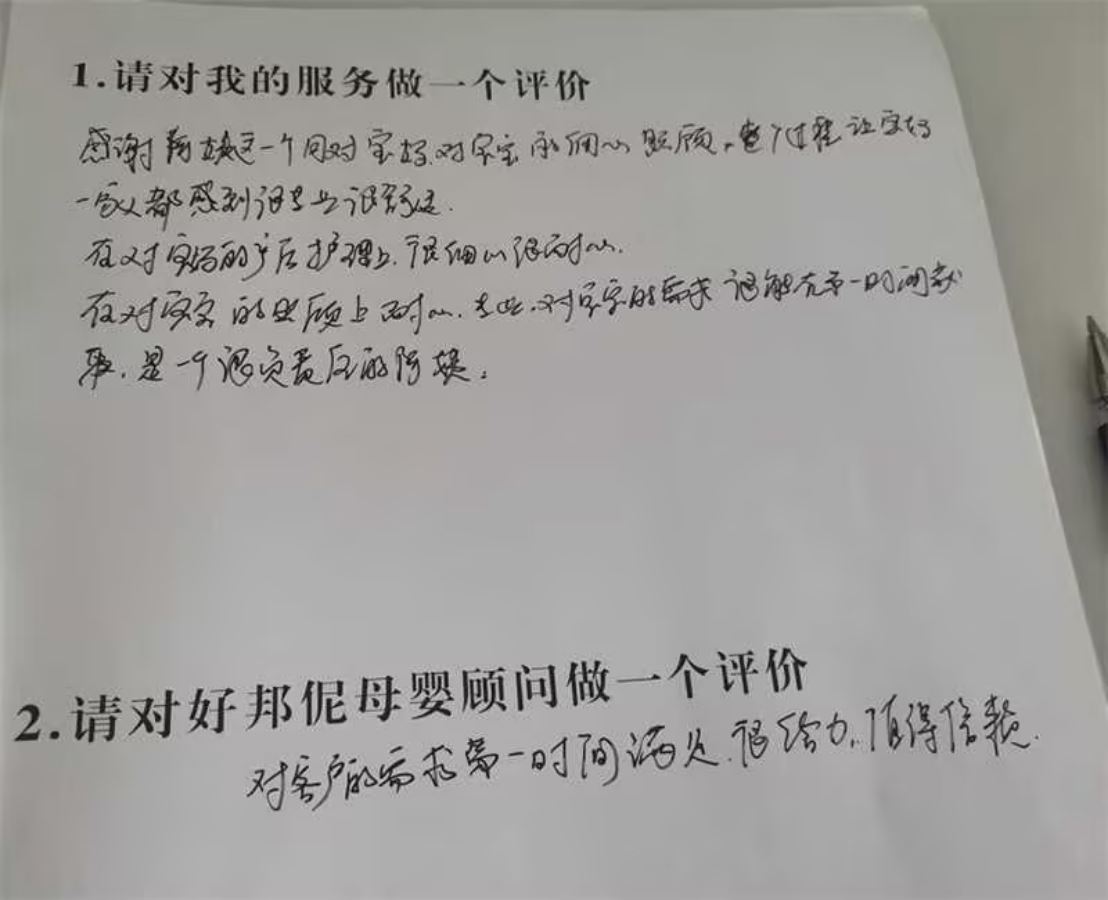 1.请对我的服务做一个评价
感谢陈姨这一个月对宝妈、对宝宝的细心照顾。整个过程让宝妈
一家人都感到很专业很舒适.
在对宝妈的产后护理上.很细心很耐心.
在对宝宝的照顾上耐心.专业.对宝宝的需求很能在第一时间获
取.是一个很负责任的阿姨.
2.请对好邦伲母婴顾问做一个评价
对客户的需求第一时间满足.很给力.值得信赖.